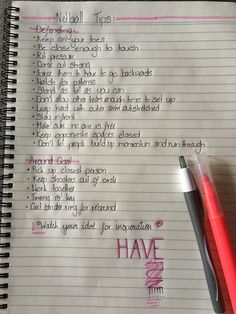 Netball Tips:
Defending:
• Keep on your toes
• Be close enough to touch
• Put pressure
• Come out strong
• Force them to have to go backwards
• Watch for patterns
• Stand as tall as you can
• Don't allow other team enough time to set up
• Leap hard with outer arm outstretched
• Stay infront
• Make sure no one is free
• Keep opponents spaces closed
• Don't let people build up momentum and run through
Around Goal:
• Pick up closest person
• Keep shooters out of circle
• Work together
• Timing is key
• Get under ring for rebound
Watch your idol for inspiration
HAVE
FUN